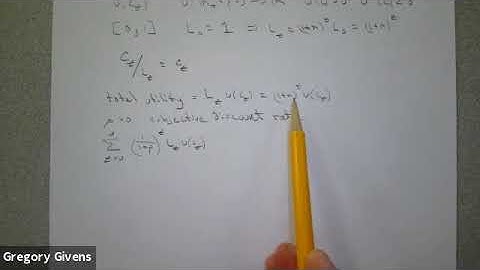 [A3:] L₀ = 1 ⇒ L_t = (1+n)^t L₀ = (1+n)^t
C_t/L_t = c_t
total utility = L_t u(c_t) = (1+n)^t u(c_t)
ρ>0 subjective discount rat
∑_{t=0} (1/(1+ρ))^t L_t u(c_t)
Gregory Givens